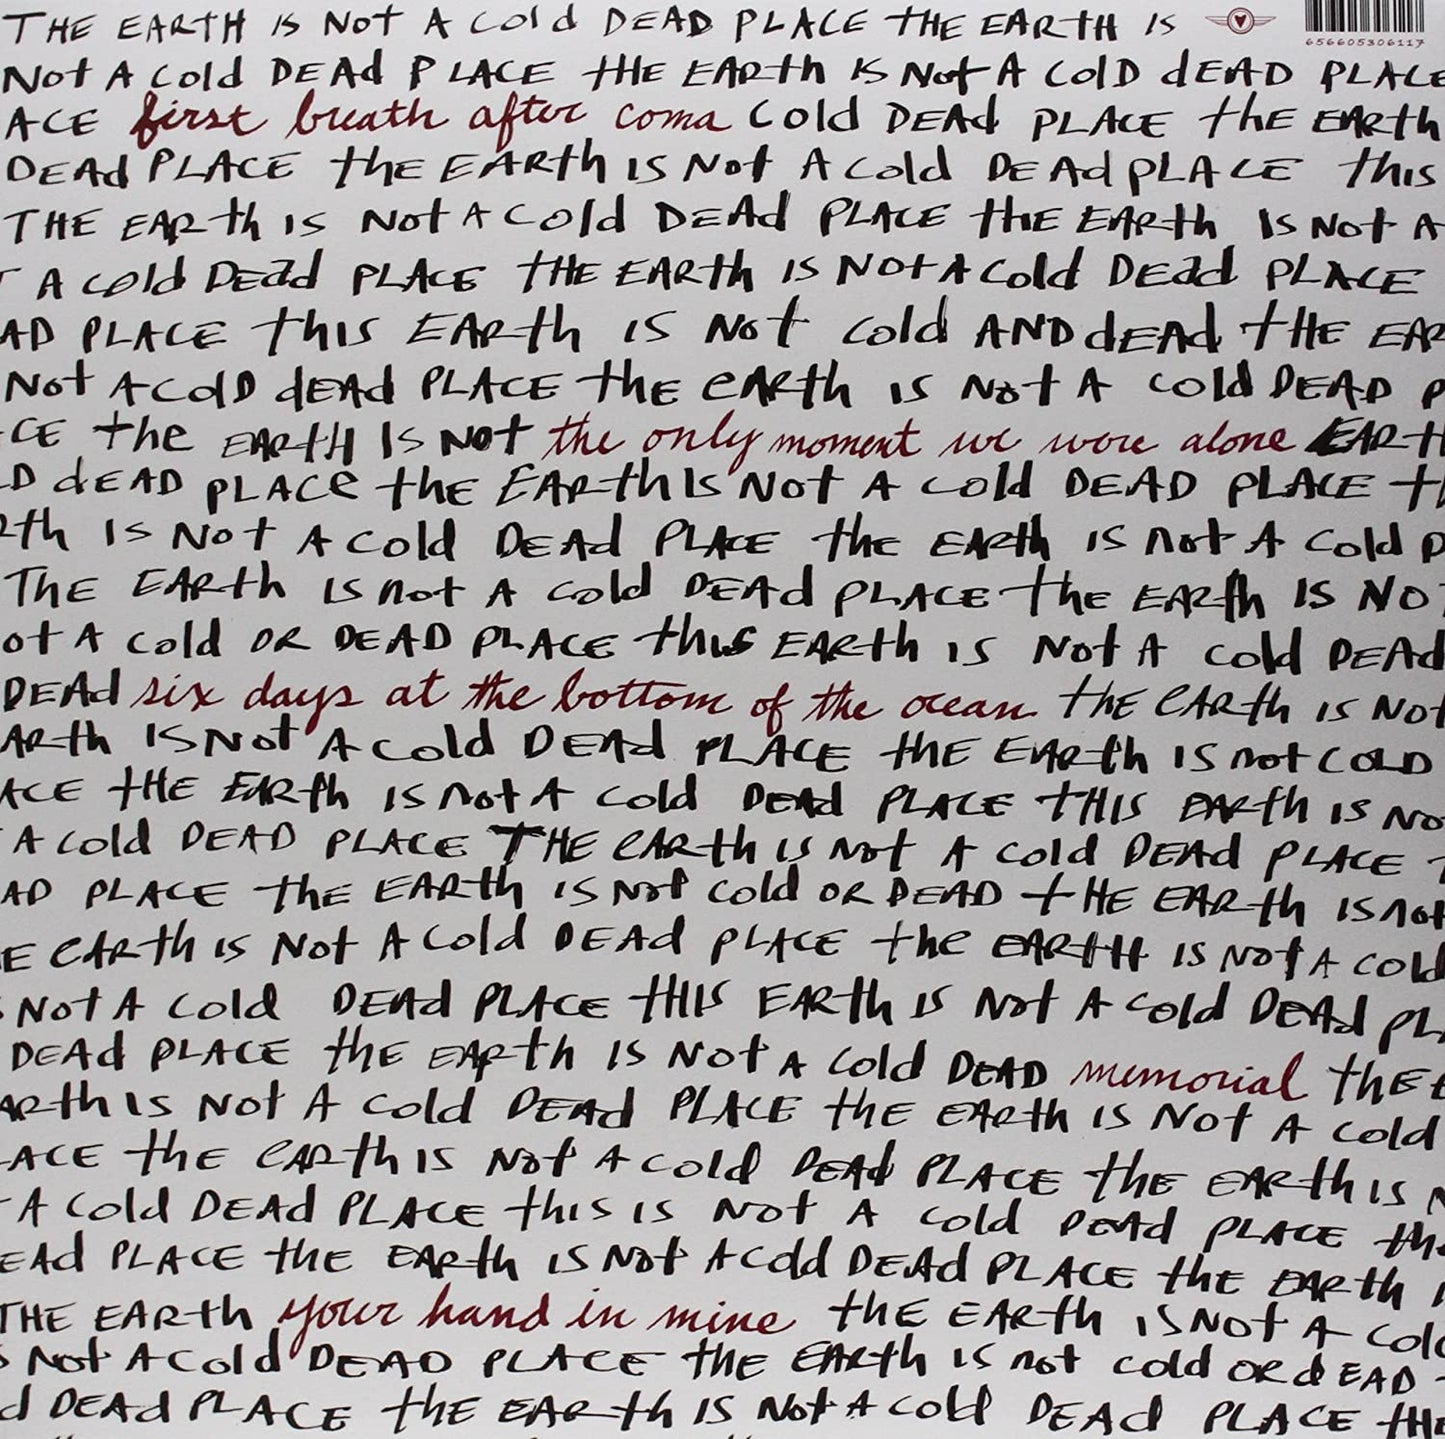 THE EARTH IS Not A Cold DEAD PLACE tHE EARtH IS
656605306117
Not A Cold DEAd PLACE tHE EARth IS Not A ColD dEAD PLACE
ACE first breath after coma Cold DEAd PLACE thE EARth
DEAd PLACE thE EARth IS Not A Cold DEAd pLACE this
THE EARth is Not A Cold DEAd PLACE tHE EARth IS Not A
A Cold DEad PLACE tHE EARth IS Not A Cold DEad PLACE
AD PLACE this EARth IS Not Cold AND dEAD tHE EAR
Not A ColD dEAd PLACE thE eARth IS Not A Cold DEAD P
CE the EARtH IS NOt the only moment we were alone EARtH
D dEAD PLACe thE EARth IS Not A Cold DEAD PLACE tH
Rth IS Not A Cold DEAd PLACE thE EARth IS not A Cold P
THE EARth IS not A Cold DEAd PLACE thE EARth IS NO
ot A Cold OR DEAD PLACE thiS EARth IS Not A Cold DEAd
DEAd six days at the bottom of the ocean tHE eARth IS Not
ARth IS Not A Cold DEAd PLACE tHE EARth IS not COLD
ACE tHE EARth IS not A Cold DEAd PLACE tHIS EARth IS No
A Cold DEAD PLACE THE eARth is Not A Cold DEAd PLACE
AD PLACE thE EARth IS Not Cold OR DEAD tHE EARth IS not
E eARth IS Not A Cold DEAd PLACE the EARtH IS Not A Cold
Not A Cold DEAd PLACE tHIS EARth IS Not A Cold DEAd PL
DEAd PLACE thE EARth IS Not A Cold DEAD memorial tHE E
ARth IS Not A Cold DEAd PLACE thE EARth IS Not A Cold
LACE thE eARth IS Not A Cold DEAd PLACE thE EARth IS N
A Cold DEAd PLACE this IS Not A Cold DEAd PLACE th
EAd PLACE thE EARth IS Not A Cold DEAd PLACE thE EARth
THE EARth your hand in mine thE EARth IS Not A Cold
Not A Cold DEAD PLACE thE EARth IS not Cold OR dEAD
d DEAd PLACE thE EARth IS Not A Cold DEAd PLACE tHE